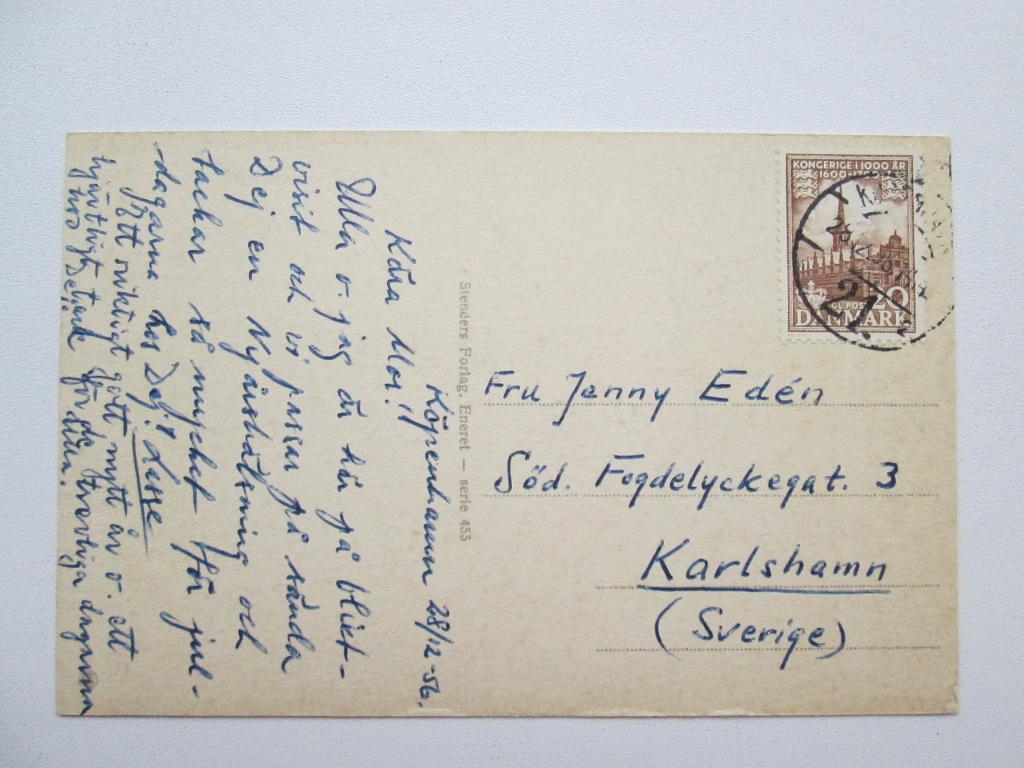 Köpenhamn 28/12-56.
Kära Mor!
Ulla o. jag är här på blixt-
visit och vi passar på sända
Dej en Nyårshälsning och
tackar så mycket för jul-
dagarna hos Dej! Lasse
Jätt riktigt gott nytt år o. ett
hjärtligt tack för de trevliga dagarna
hos Dej. Ulla.
Stenders Forlag. Eneret — serie 455
KONGERIGE I 1000 ÅR
1600-
20
DANMARK
21.
Fru Jenny Edén
Söd. Fogdelyckegat. 3
Karlshamn
(Sverige)